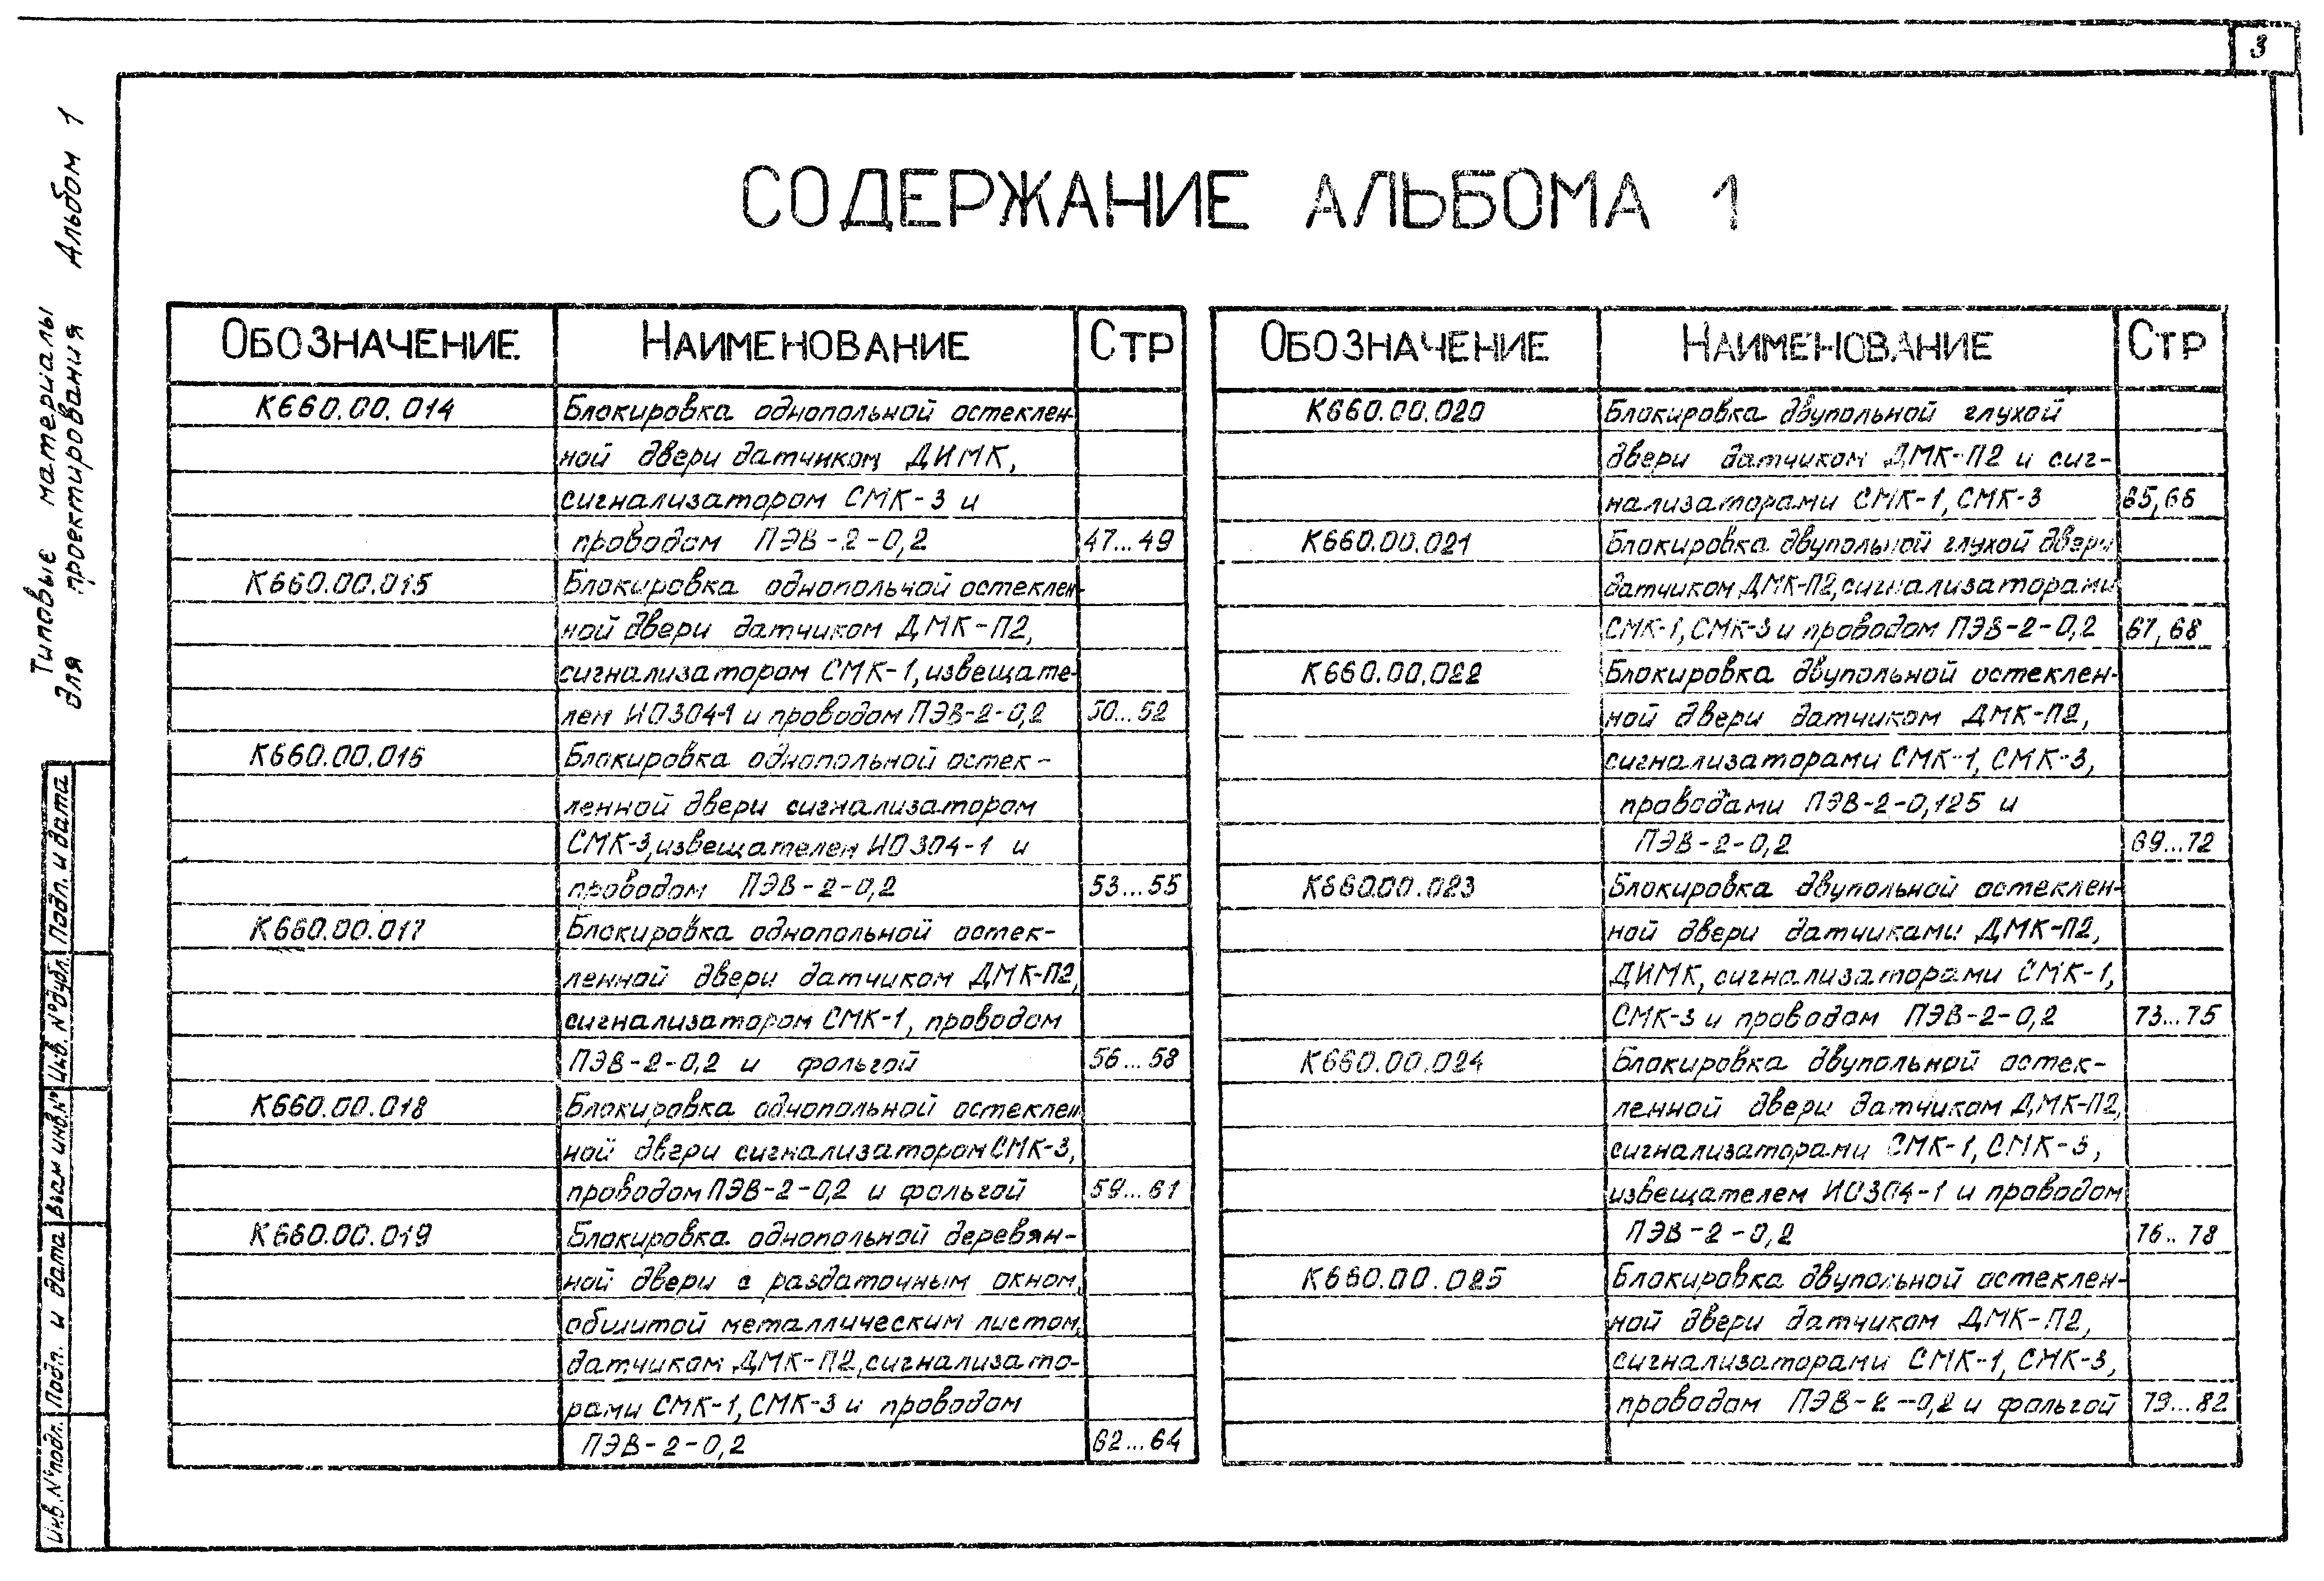 3
Типовые материалы
для проектирования Альбом 1
СОДЕРЖАНИЕ АЛЬБОМА 1
ОБОЗНАЧЕНИЕ НАИМЕНОВАНИЕ СТР
К660.00.014 Блокировка однопольной остеклен-
ной двери датчиком ДИМК,
сигнализатором СМК-3 и
проводом ПЭВ-2-0,2 47...49
К660.00.015 Блокировка однопольной остеклен-
ной двери датчиком ДМК-П2,
сигнализатором СМК-1, извещате-
лем ИО304-1 и проводом ПЭВ-2-0,2 50...52
К660.00.016 Блокировка однопольной остек-
ленной двери сигнализатором
СМК-3, извещателем ИО304-1 и
проводом ПЭВ-2-0,2 53...55
К660.00.017 Блокировка однопольной остек-
ленной двери датчиком ДМК-П2,
сигнализатором СМК-1, проводом
ПЭВ-2-0,2 и фольгой 56...58
К660.00.018 Блокировка однопольной остеклен
ной двери сигнализатором СМК-3,
проводом ПЭВ-2-0,2 и фольгой 59...61
К660.00.019 Блокировка однопольной деревян-
ной двери с раздаточным окном,
обшитой металлическим листом,
датчиком ДМК-П2, сигнализато-
рами СМК-1, СМК-3 и проводом
ПЭВ-2-0,2 62...64
ОБОЗНАЧЕНИЕ НАИМЕНОВАНИЕ СТР
К660.00.020 Блокировка двупольной глухой
двери датчиком ДМК-П2 и сиг-
нализаторами СМК-1, СМК-3 65,66
К660.00.021 Блокировка двупольной глухой двери
датчиком ДМК-П2, сигнализаторами
СМК-1, СМК-3 и проводом ПЭВ-2-0,2 67,68
К660.00.022 Блокировка двупольной остеклен-
ной двери датчиком ДМК-П2,
сигнализаторами СМК-1, СМК-3,
проводами ПЭВ-2-0,125 и
ПЭВ-2-0,2 69...72
К660.00.023 Блокировка двупольной остеклен-
ной двери датчиками ДМК-П2,
ДИМК, сигнализаторами СМК-1,
СМК-3 и проводом ПЭВ-2-0,2 73...75
К660.00.024 Блокировка двупольной остек-
ленной двери датчиком ДМК-П2,
сигнализаторами СМК-1, СМК-3,
извещателем ИО304-1 и проводом
ПЭВ-2-0,2 76..78
К660.00.025 Блокировка двупольной остеклен-
ной двери датчиком ДМК-П2,
сигнализаторами СМК-1, СМК-3,
проводом ПЭВ-2-0,2 и фольгой 79...82
Инв. № подл. Подп. и дата Взам инв. № Инв. № дубл. Подп. и дата